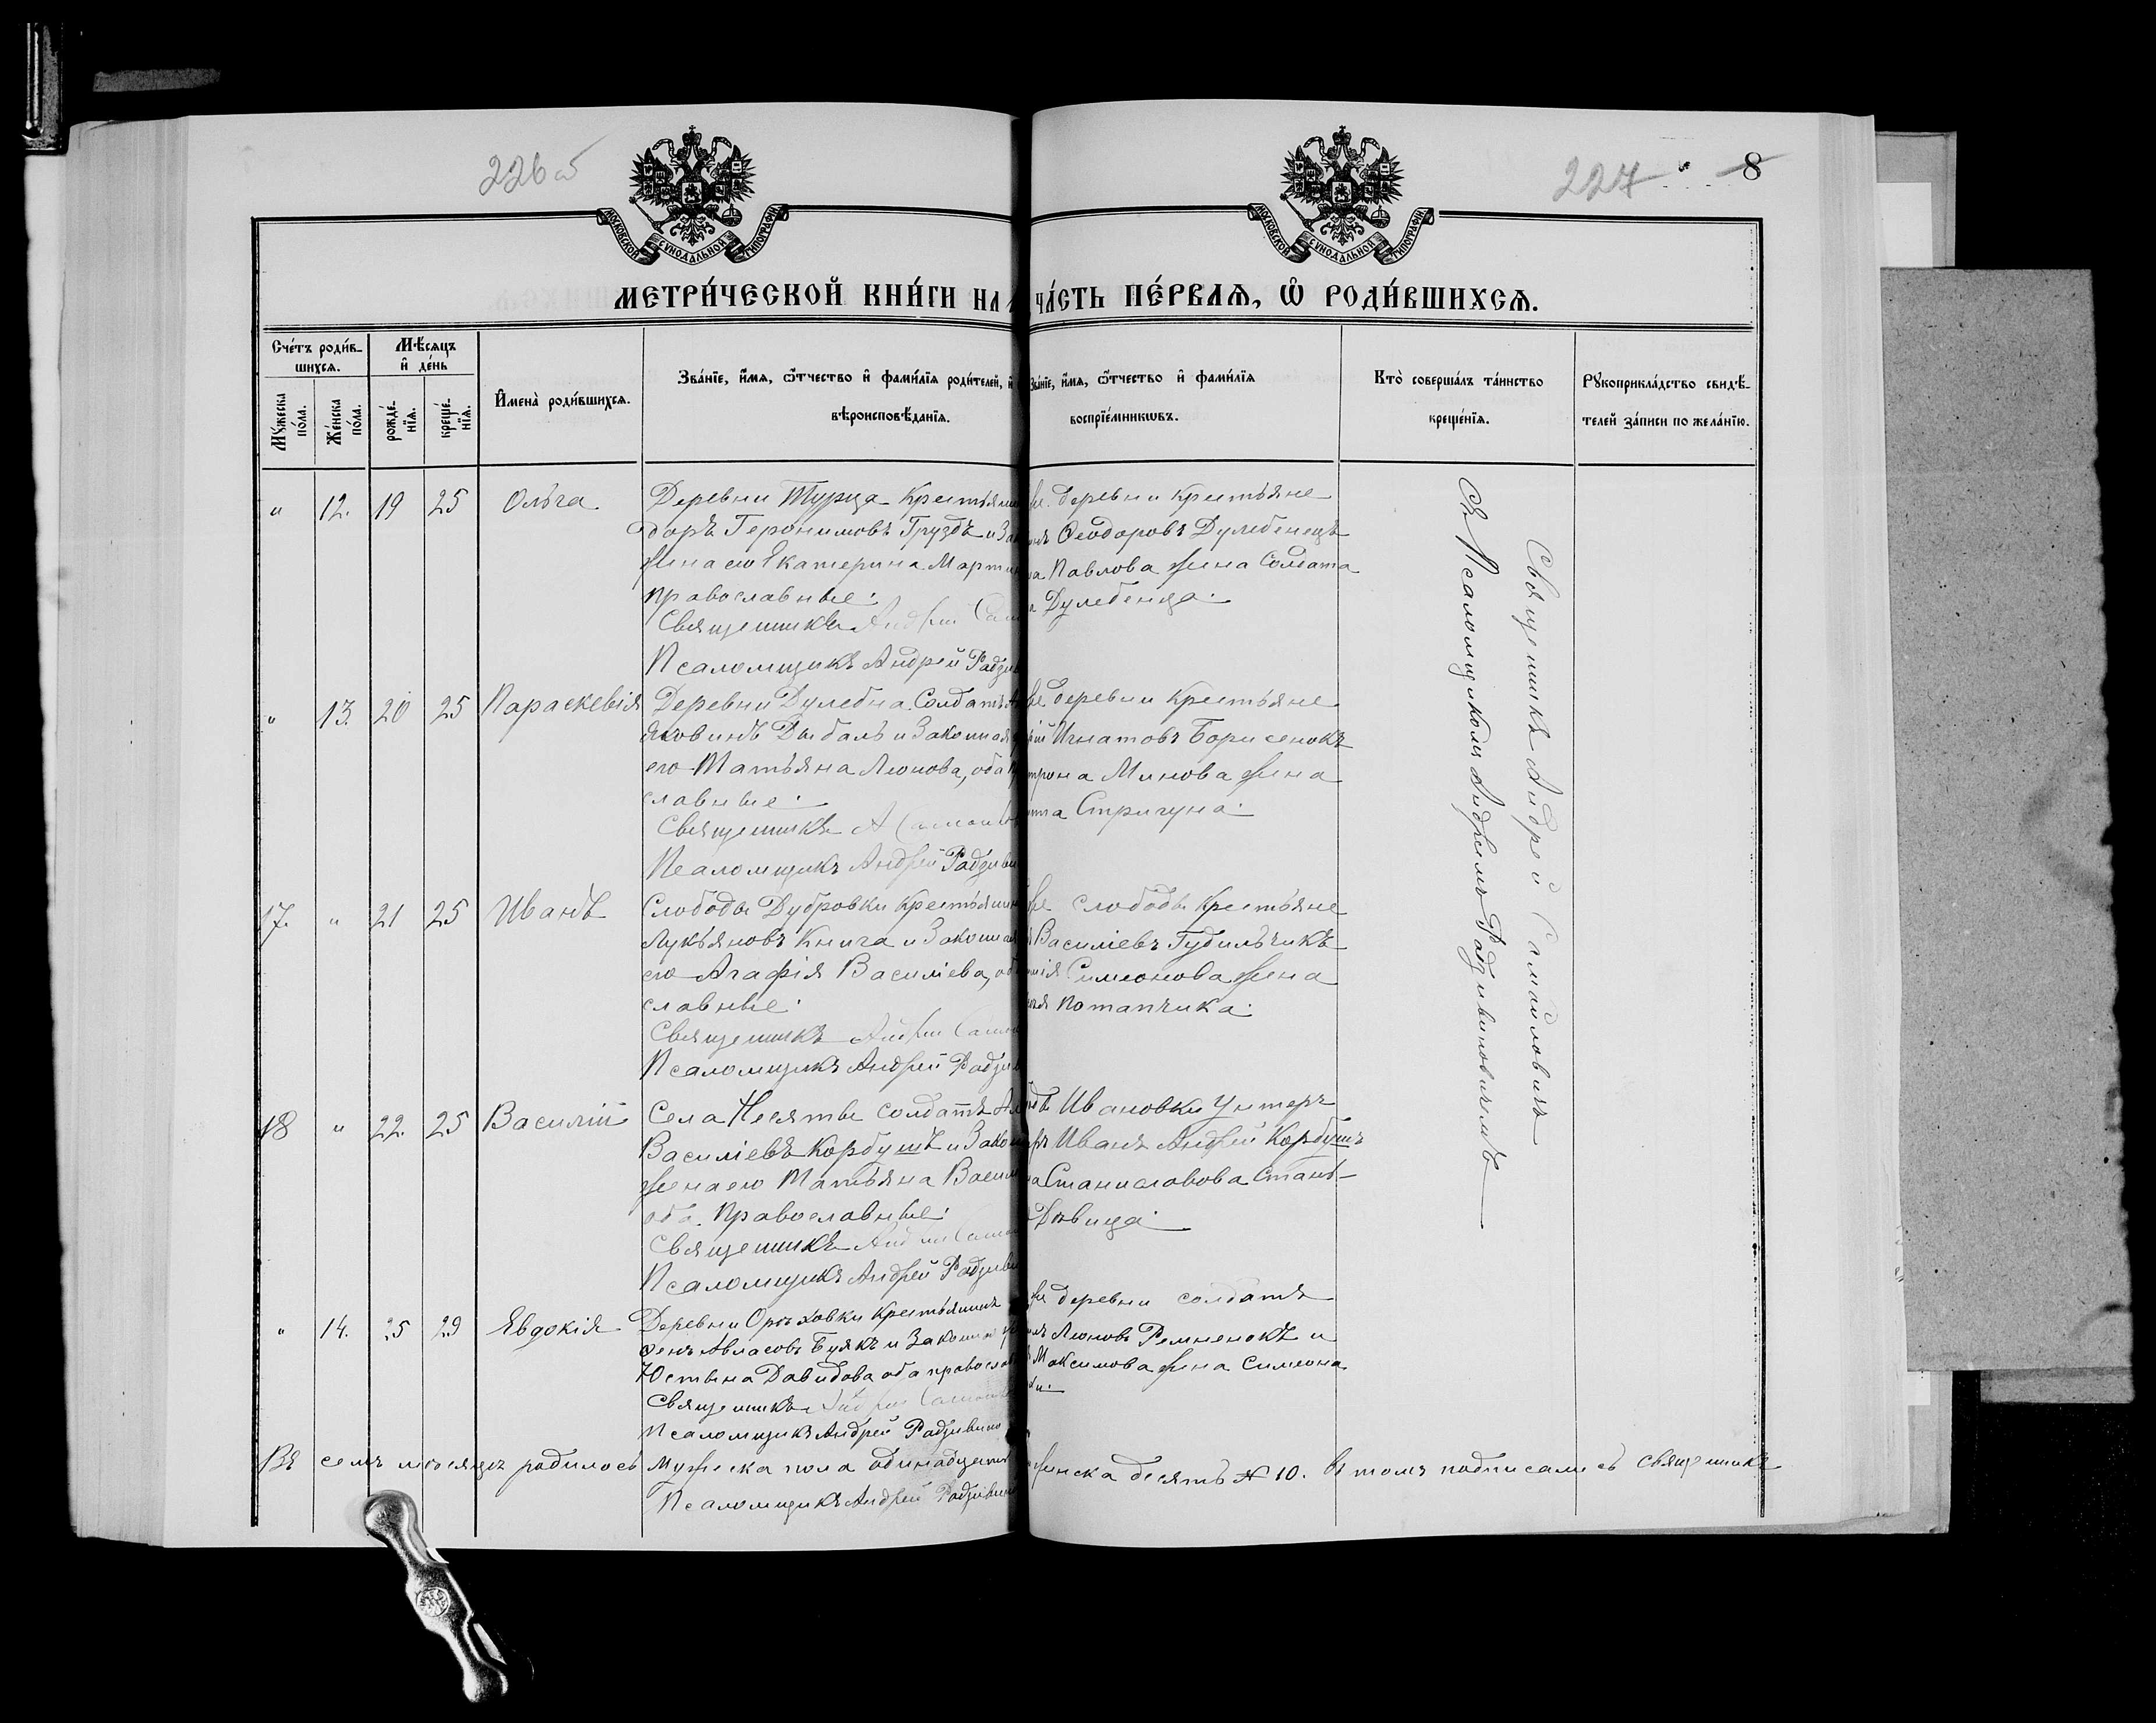 226 об
227
8
МОСКОВСКОЙ СѴНОДАЛЬНОЙ ТИПОГРАФІИ
МОСКОВСКОЙ СѴНОДАЛЬНОЙ ТИПОГРАФІИ
МЕТРИ́ЧЕСКОЙ КНИ́ГИ НА
ЧА́СТЬ ПЕ́РВАЯ, Ѽ РОДИ́ВШИХСЯ.
Сче́тъ роди́в-
шихся.
Мѣ́сяцъ
и҆ де́нь
Мꙋ́жеска по́ла.
Же́нска по́ла.
рожде́-нїя.
креще́-нїя.
И҆мена̀ роди́вшихся.
Зва́нїе, и҆́мя, ѻ҆́тчество и҆ фами́лїя роди́телей, и҆
вѣроисповѣ́данїя.
Зва́нїе, и҆́мя, ѻ҆́тчество и҆ фами́лїя
воспрїе́мникѡвъ.
Кто̀ соверша́лъ та́инство
креще́нїя.
Рꙋкоприкла́дство свидѣ́-
телей за́писи по жела́нїю.
" 12. 19 25 Ольга
Деревни Турца Крестьянин
доръ Геронимовъ Груздъ и За
жена его Екатерина Марти
православные.
Священникъ Андрей Сам
Псаломщикъ Андрей Радзив
же деревни крестьяне
Феодоровъ Дулебенецъ
Павлова жена Солдата
Дулебенца.
" 13. 20 25 Параскевія
Деревни Дулебна Солдатъ
Яковинъ Дыбаль и Законная
его Татьяна Леонова, оба
славные.
Священникъ А Самойлов
Псаломщикъ Андрей Радзиви
же деревни крестьяне
Игнатовъ Борисенокъ
Минова жена
Стригуна.
17. " 21 25 Иванъ
Слободы Дубровки крестьянин
Лукьяновъ Книга и Законная
его Агафія Василіева, об
славные.
Священникъ Андрей Само
Псаломщикъ Андрей Радзив
же слободы крестьяне
Василіевъ Гудильчикъ
Симеонова жена
Потапчика.
18 " 22. 25 Василій
Села Несяты солдатъ
Василіевъ Корбутъ и Закон
жена его Татьяна Васил
оба Православные.
Священникъ Андрей Само
Псаломщикъ Андрей Радзиви
Ивановки Унтеръ
Иванъ Андрей Корбутъ
Станиславова Стань-
Дѣвица.
" 14. 25 29 Евдокія
Деревни Орѣховки крестьянинъ
Авласовъ Буякъ и Законная
Юстына Давидова оба православ
Священникъ Андрей Самой
Псаломщикъ Андрей Радзивино
же деревни солдатъ
Леоновъ Ремненокъ и
Максимова жена Симеона
Священникъ Андрей Самойловичъ
Съ Псаломщикомъ Андреемъ Радзивиновичемъ
Въ семъ месяцѣ родилось Мужеска пола одинадцать
женска десять № 10. В томъ подписались священникъ
Псаломщикъ Андрей Радзивин